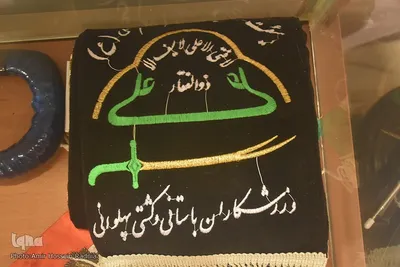 هیئت
لا فتی الا علی لا سیف الا
ذوالفقار
علی
ورزشکاران باستانی و کشتی پهلوانی
iqna
Photo: Amir Hossein